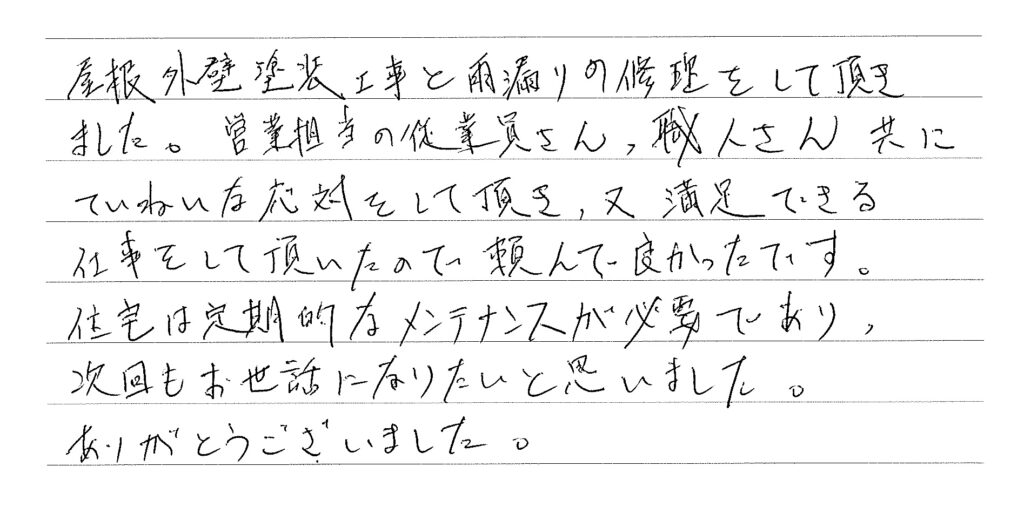 屋根外壁塗装工事と雨漏りの修理をして頂き
ました。営業担当の従業員さん,職人さん共に
ていねいな応対をして頂き,又満足できる
仕事をして頂いたので頼んで良かったです。
住宅は定期的なメンテナンスが必要であり,
次回もお世話になりたいと思いました。
ありがとうございました。